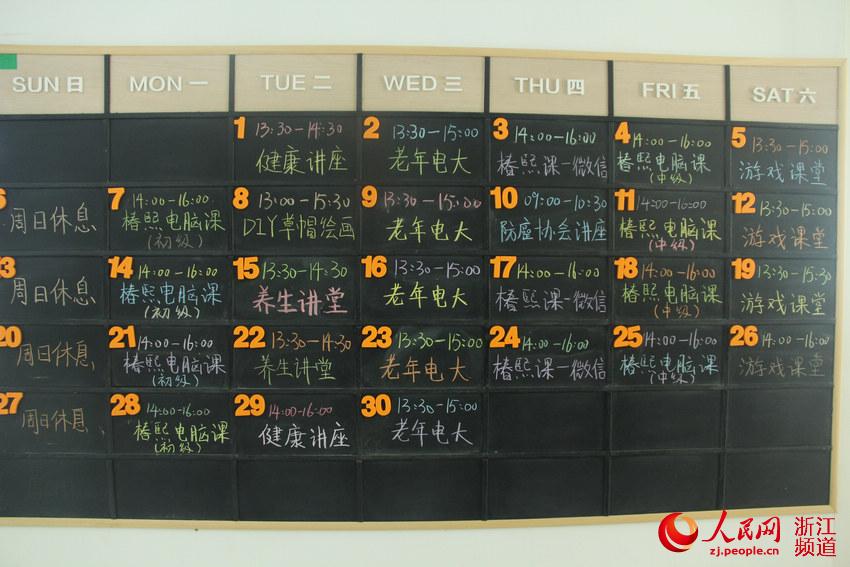 SUN 日 MON 一 TUE 二 WED 三 THU 四 FRI 五 SAT 六
1 13:30-14:30
健康讲座
2 13:30-15:00
老年电大
3 14:00-16:00
椿熙课-微信
4 14:00-16:00
椿熙电脑课
(中级)
5 13:30-15:00
游戏课堂
6
周日休息
7 14:00-16:00
椿熙电脑课
(初级)
8 13:00-15:30
DIY草帽绘画
9 13:30-15:00
老年电大
10 09:00-10:30
防癌协会讲座
11 14:00-16:00
椿熙电脑课
(中级)
12 13:30-15:00
游戏课堂
13
周日休息
14 14:00-16:00
椿熙电脑课
(初级)
15 13:30-14:30
养生讲堂
16 13:30-15:00
老年电大
17 14:00-16:00
椿熙课-微信
18 14:00-16:00
椿熙电脑课
(中级)
19 13:30-15:30
游戏课堂
20
周日休息
21 14:00-16:00
椿熙电脑课
(初级)
22 13:30-14:30
养生讲堂
23 13:30-15:00
老年电大
24 14:00-16:00
椿熙课-微信
25 14:00-16:00
椿熙电脑课
(中级)
26 14:00-16:00
游戏课堂
27
周日休息
28 14:00-16:00
椿熙电脑课
(初级)
29 14:00-16:00
健康讲座
30 13:30-15:00
老年电大
人民网 浙江频道
zj.people.cn